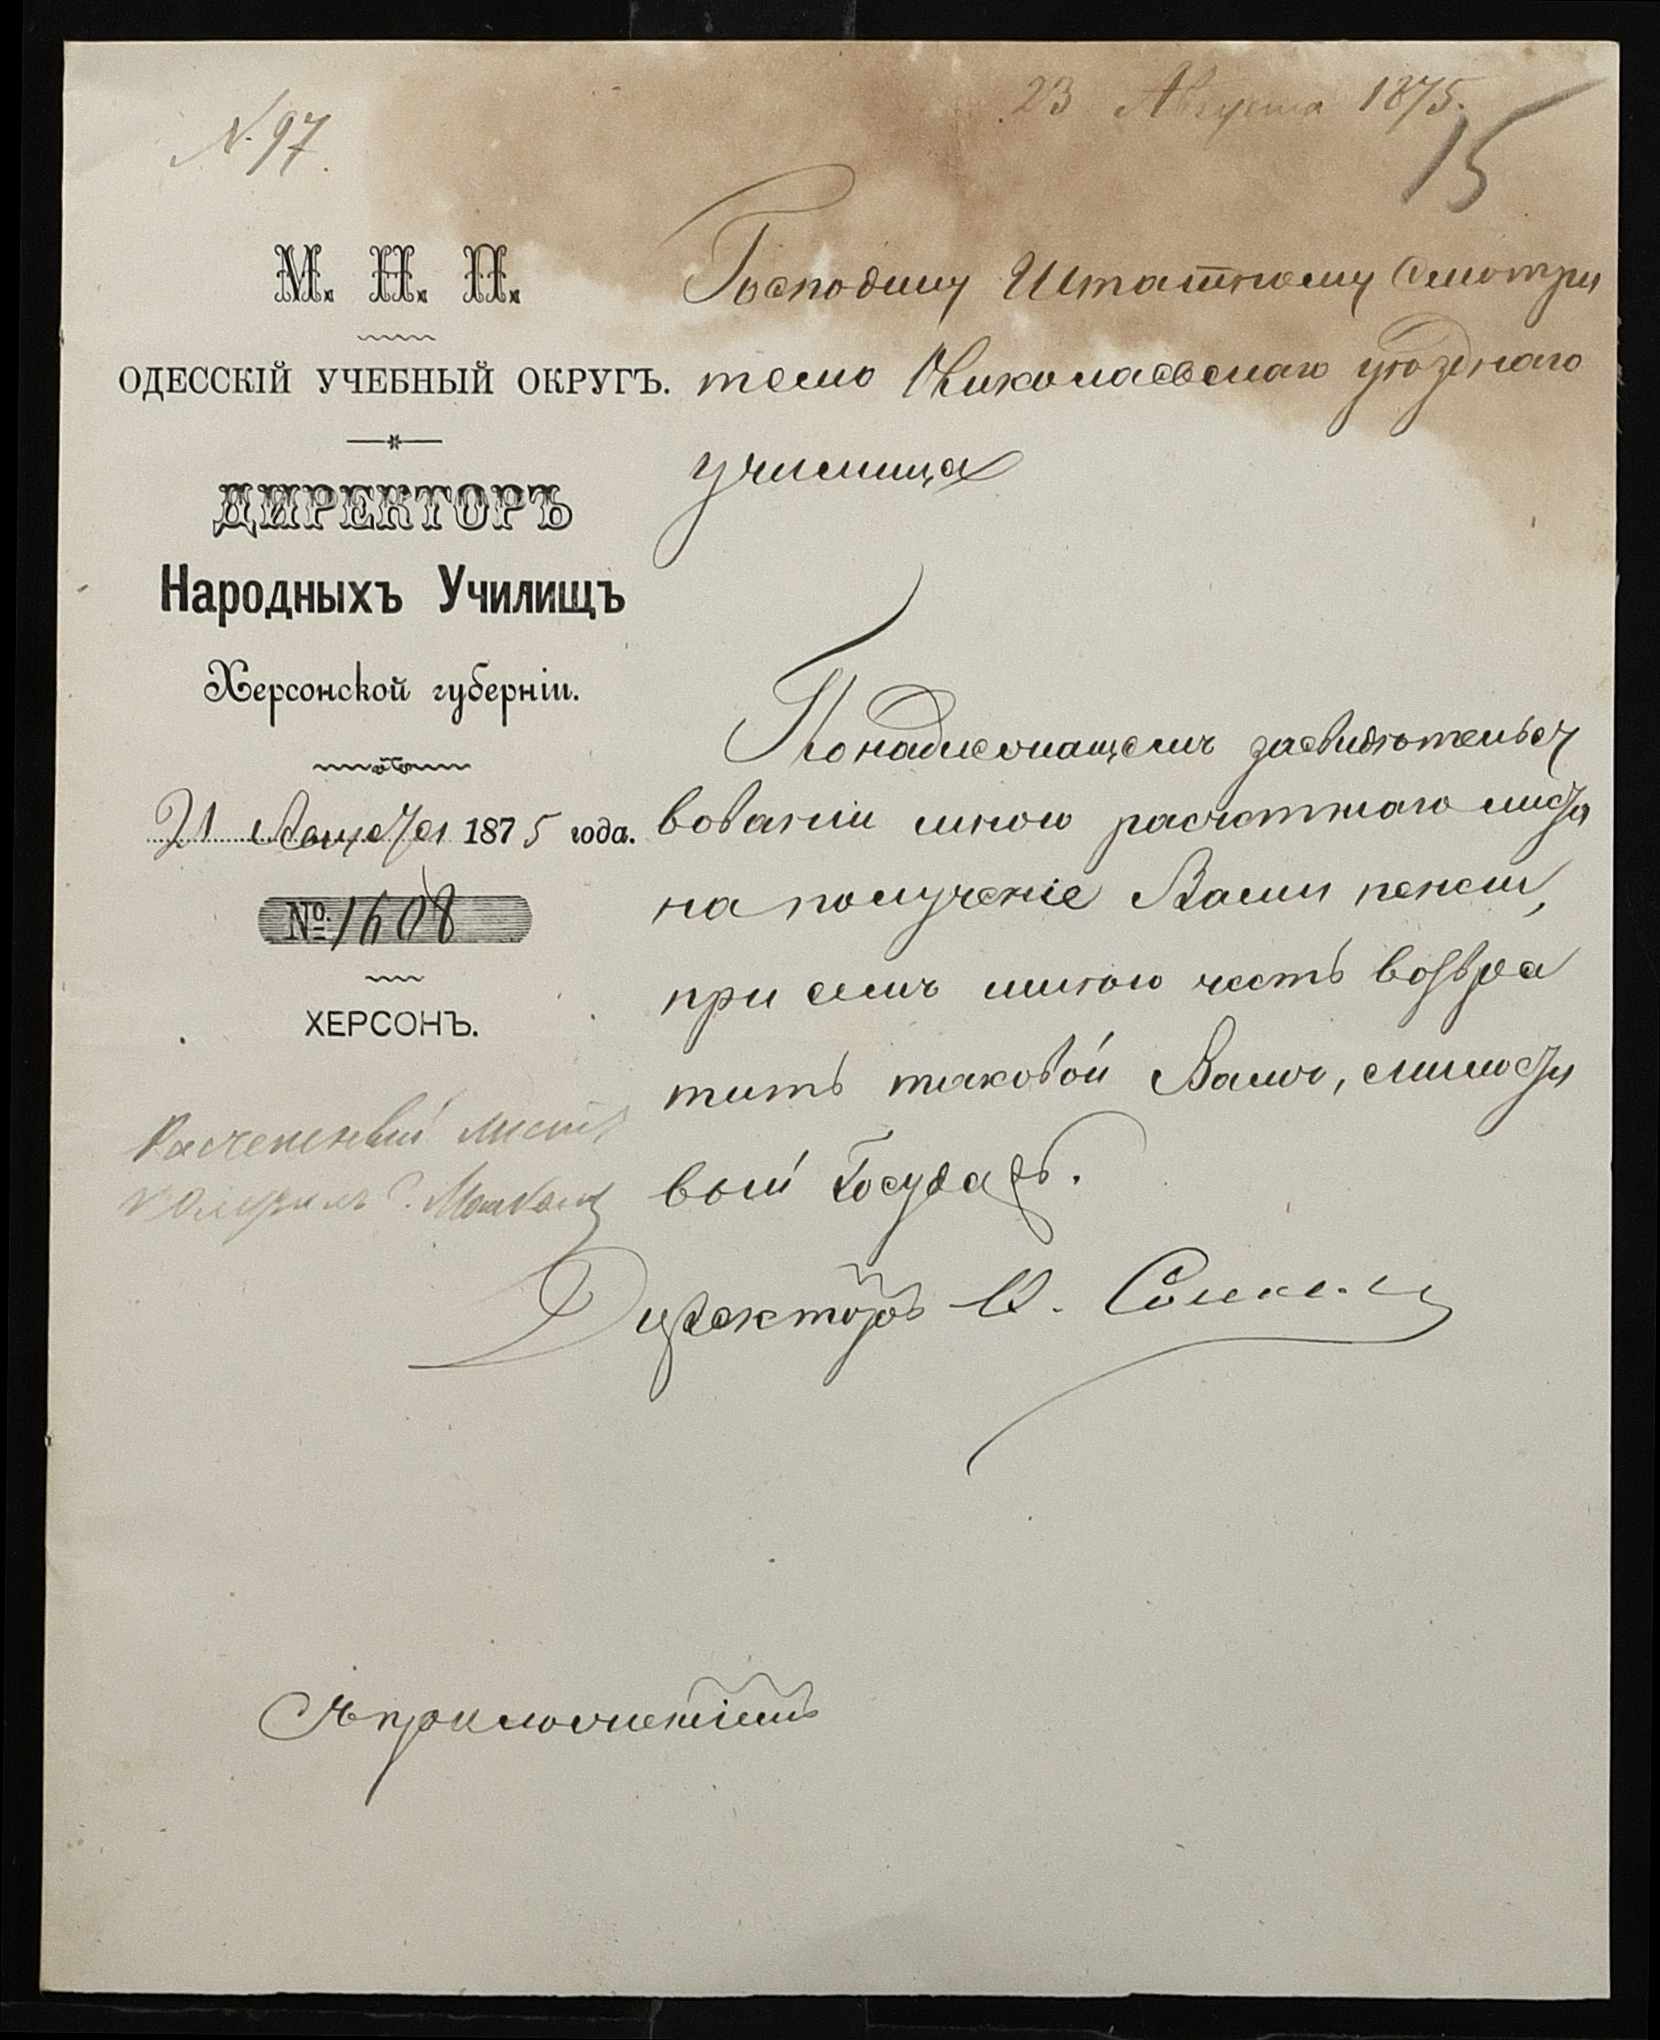 № 97.
23 Августа 1875.
15
М. Н. П.
ОДЕССКІЙ УЧЕБНЫЙ ОКРУГЪ.
ДИРЕКТОРЪ
Народныхъ Училищъ
Херсонской губерніи.
21 Августа 1875 года.
№ 1608
ХЕРСОНЪ.
Расчетный листъ
получилъ
Господину Штатному Смотри
телю Николаевскаго уѣзднаго
училища
По надлежащемъ засвидѣтельст
вованіи мною расчетнаго листа
на полученіе Вами пенсіи,
при семъ имѣю честь возвра
тить таковой Вамъ, милости
вый Государь.
Директоръ
Съ приложеніемъ